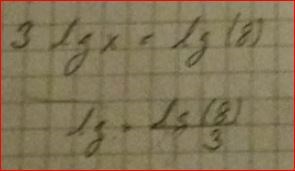 3 lg x = lg (8)
lg = lg (8) / 3